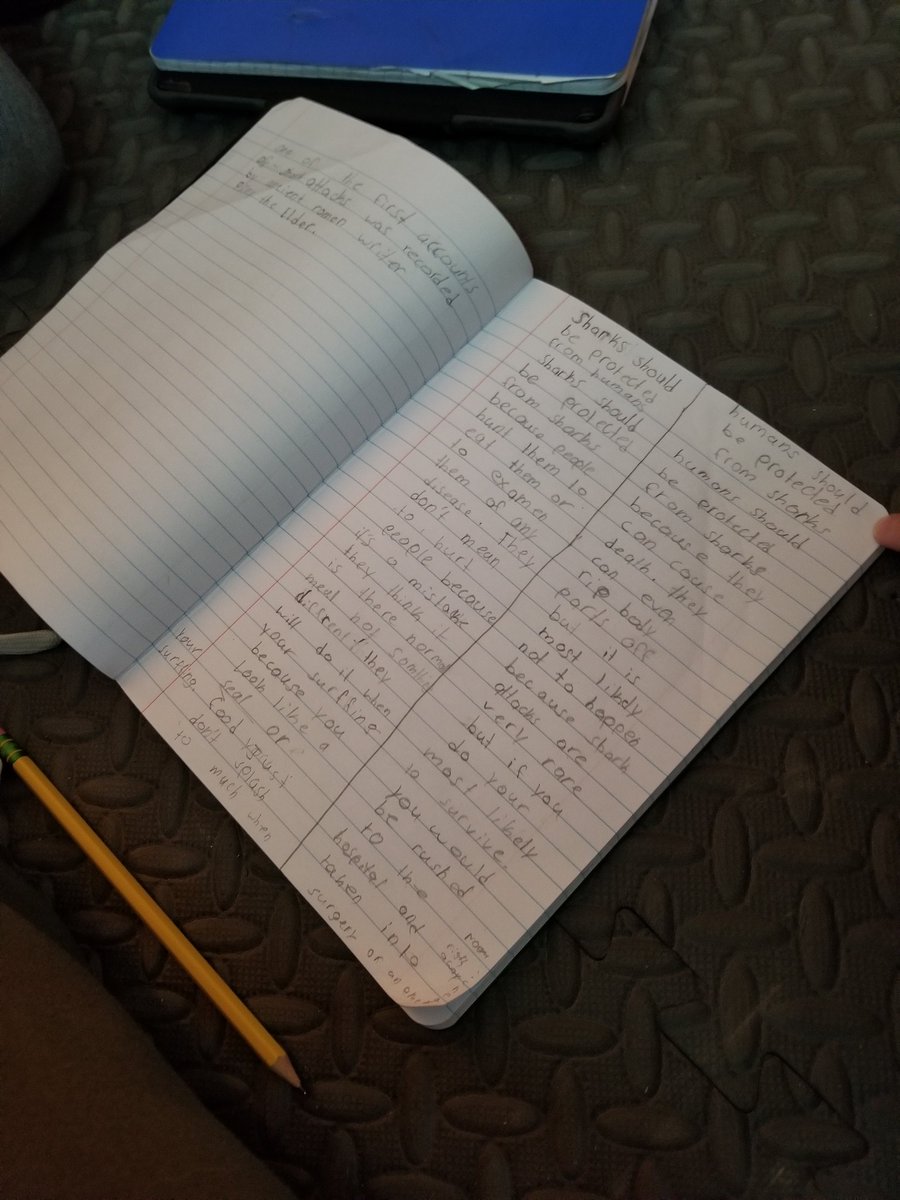 one of the first accounts
of attacks was recorded
by ancient roman writer
the Elder.
Sharks should
be protected
from humans
Sharks should
be protected
from sharks
because people
hunt them to
eat them or
to examen
them of any
disease. They
don't mean
to hurt
people because
it's a mistake
they think it
is there normal
meal not
diffrent they
will do it when
your surfing
because you
look like a
seal or
food just
don't splash
to much when
your
surfing.
humans should
be protected
from sharks
humans should
be protected
from sharks
because they
can couse
death. they
can even
rip body
parts off
but it is
most likely
not to happen
because shark
attacks are
very rare
but if you
do your
most likely
to survive.
you would
be rushed
to the
hospital and
taken into
surgery or an
room
right